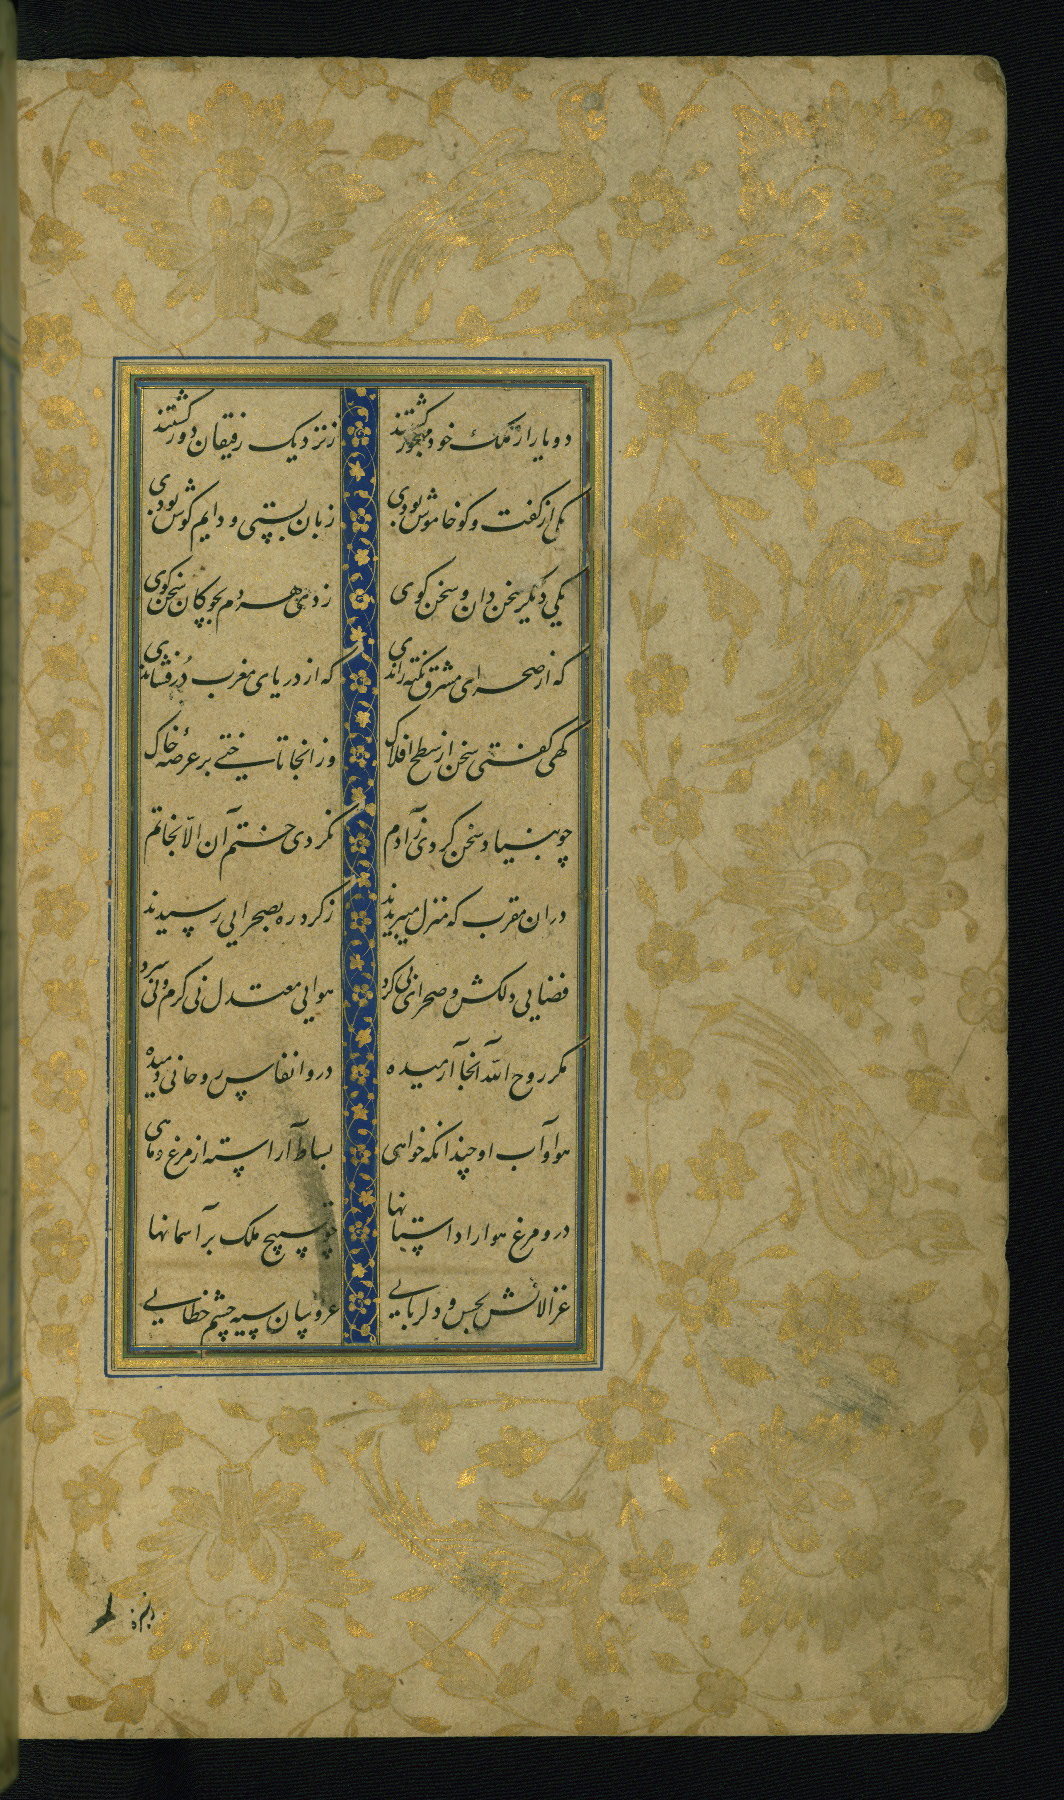 دو یار از ملک خود مهجور گشتند ز نزدیک رفیقان دور گشتند
یکی از گفت و گو خاموش بودی زبان بستی و دایم گوش بودی
یکی دیگر سخن دان و سخن گوی زدی هر دم بچوگان سخن گوی
که از صحرای مشرق نکته راندی که از دریای مغرب در فشاندی
گهی گفتی سخن از سطح افلاک وز انجا تاختی بر عرصهٔ خاک
چو بنیاد سخن کردی ز آدم نکردی ختم آن الا بخاتم
دران مقرب که منزل میبریدند ز گرد ره بصحرایی رسیدند
فضایی دلکش و صحرای بی گرد هوایی معتدل نی گرم و نی سرد
مکر روح الله آنجا آرمیده درو انفاس روحانی دمیده
هوا و آب او چندانکه خواهی بساط آراسته از مرغ و ماهی
درو مرغ هوا را داستانها چو تسبیح ملک بر آسمانها
غزالانش بحسن و دلربایی عروسان سیه چشم خطایی